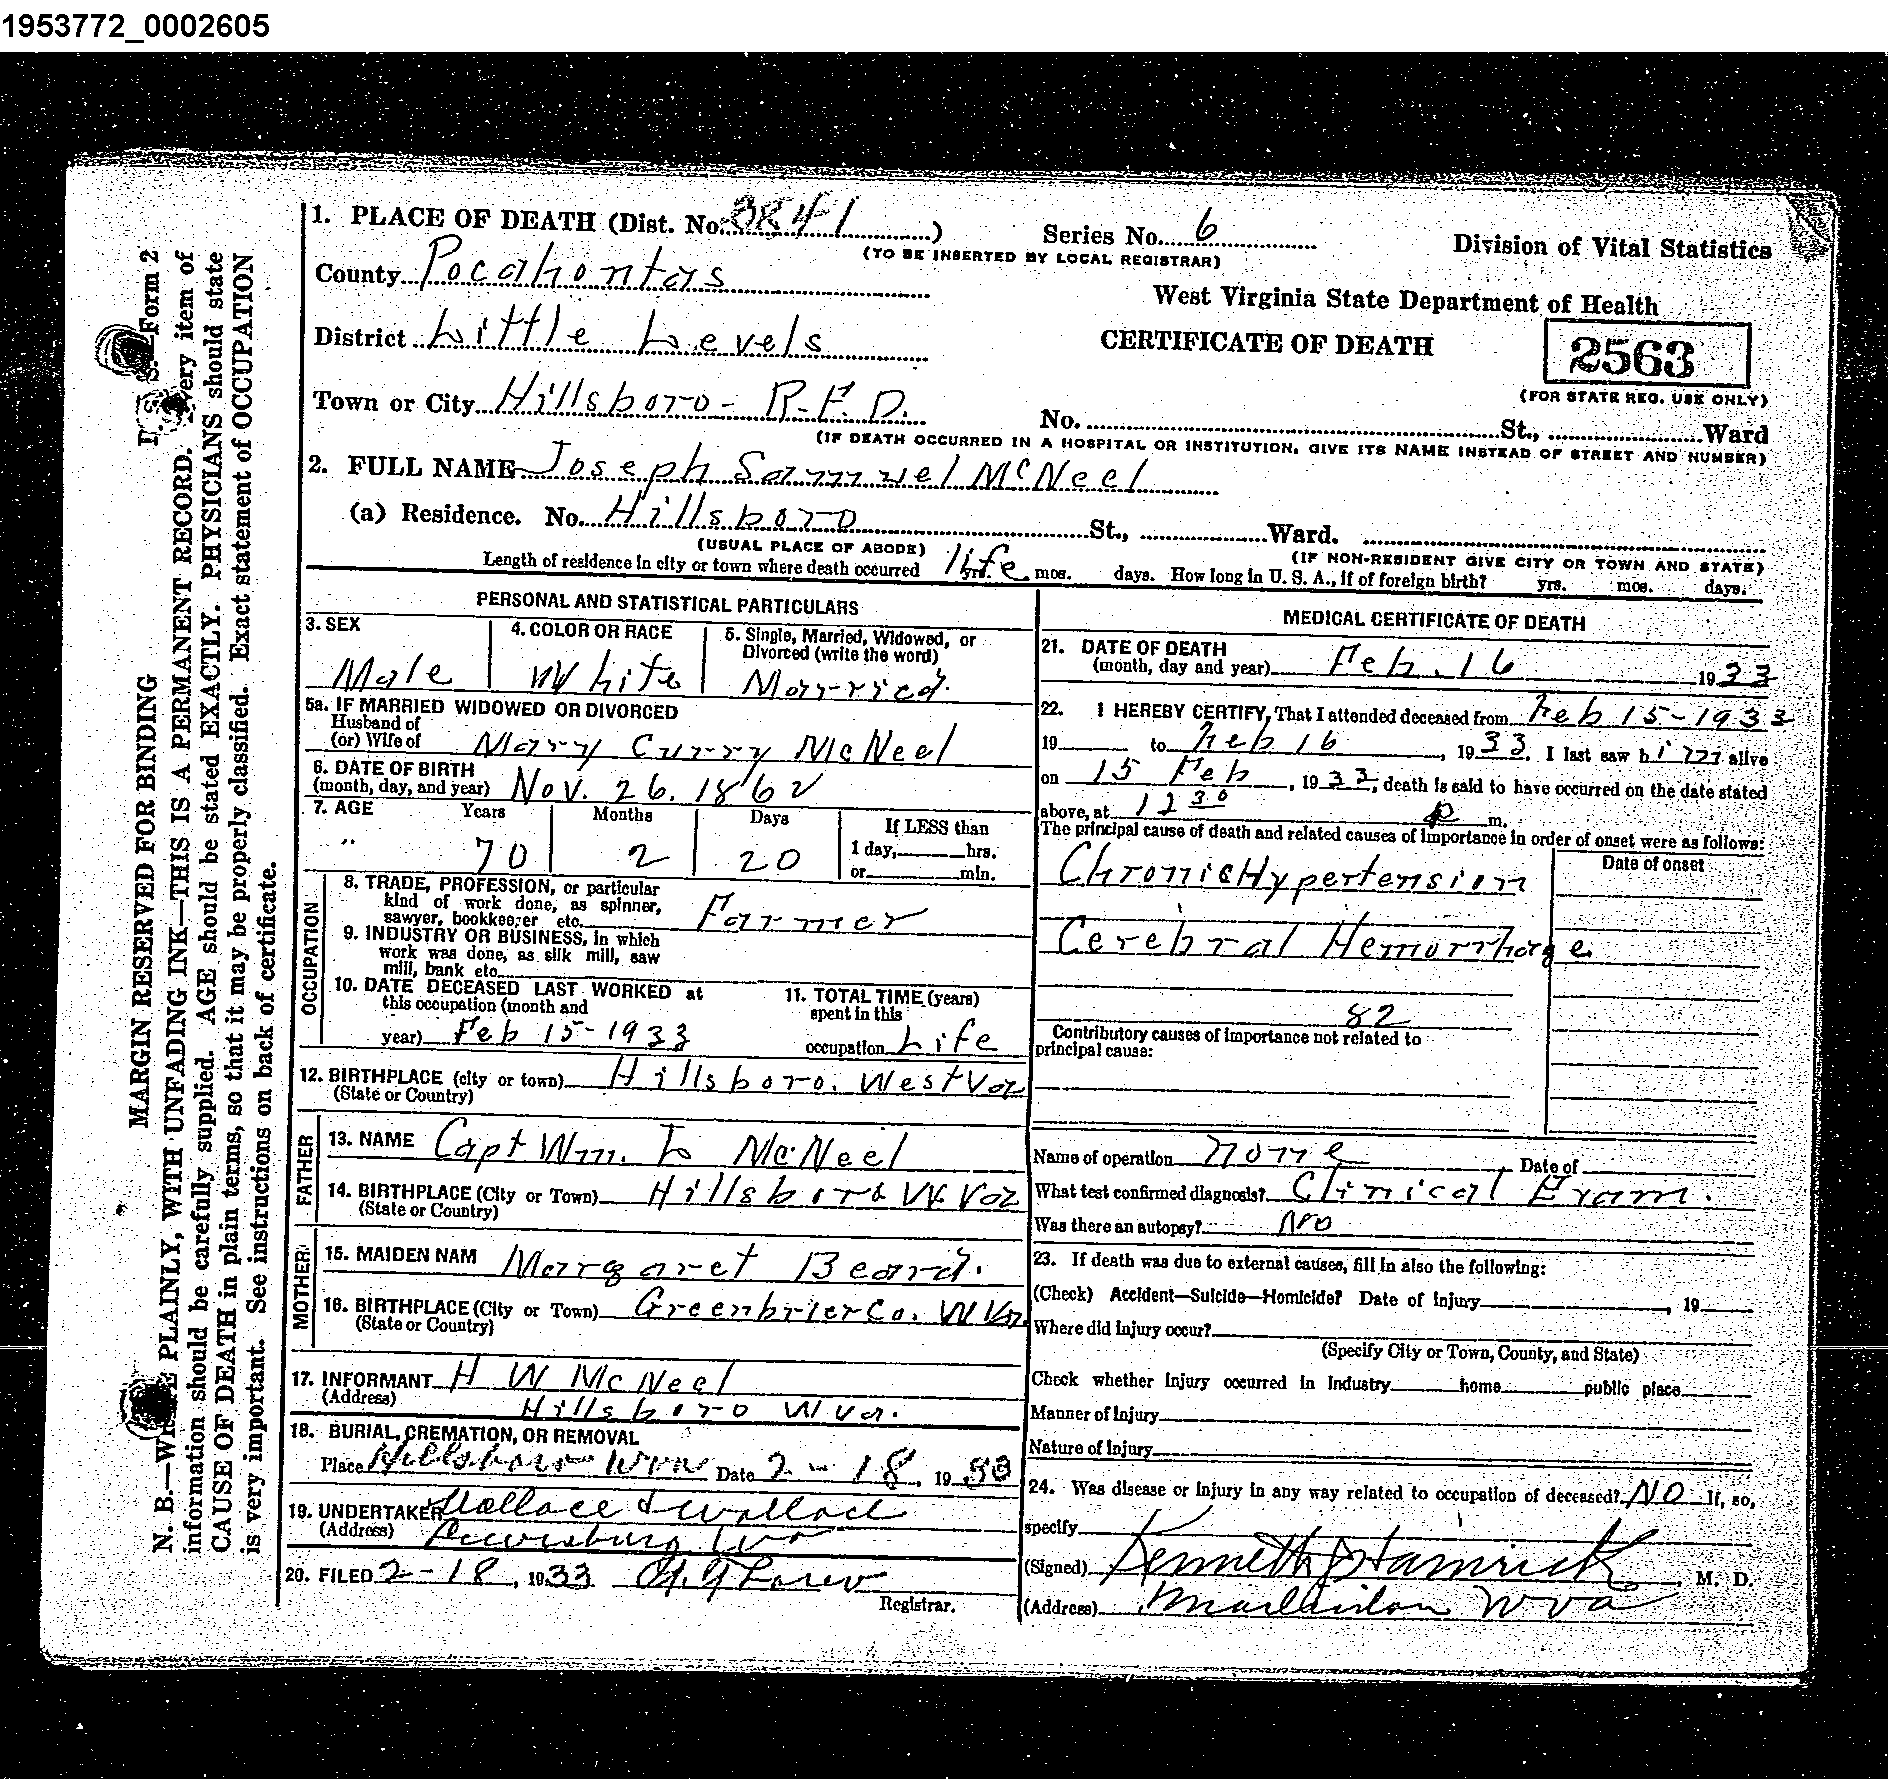 1953772_0002605
1. PLACE OF DEATH (Dist. No. 3841) Series No. 6
(TO BE INSERTED BY LOCAL REGISTRAR)
Division of Vital Statistics
County Pocahontas
West Virginia State Department of Health
District Little Levels
CERTIFICATE OF DEATH
2563
(FOR STATE REG. USE ONLY)
Town or City Hillsboro - R.F.D. No. St., Ward
(IF DEATH OCCURRED IN A HOSPITAL OR INSTITUTION, GIVE ITS NAME INSTEAD OF STREET AND NUMBER)
2. FULL NAME Joseph Sammuel McNeel
(a) Residence. No. Hillsboro St., Ward.
(USUAL PLACE OF ABODE) (IF NON-RESIDENT GIVE CITY OR TOWN AND STATE)
Length of residence in city or town where death occurred life yrs. mos. days. How long in U. S. A., if of foreign birth? yrs. mos. days.
PERSONAL AND STATISTICAL PARTICULARS
3. SEX
Male
4. COLOR OR RACE
White
5. Single, Married, Widowed, or
Divorced (write the word)
Married.
5a. IF MARRIED WIDOWED OR DIVORCED
Husband of
(or) Wife of Mary Curry McNeel
6. DATE OF BIRTH
(month, day, and year) Nov. 26. 1862
7. AGE Years Months Days
" 70 2 20
If LESS than
1 day, hrs.
or min.
OCCUPATION
8. TRADE, PROFESSION, or particular
kind of work done, as spinner,
sawyer, bookkeeper etc. Farmer
9. INDUSTRY OR BUSINESS, in which
work was done, as silk mill, saw
mill, bank etc.
10. DATE DECEASED LAST WORKED at
this occupation (month and
year) Feb 15-1933
11. TOTAL TIME (years)
spent in this
occupation Life
12. BIRTHPLACE (city or town) Hillsboro. West Va
(State or Country)
FATHER
13. NAME Capt Wm. L McNeel
14. BIRTHPLACE (City or Town) Hillsboro W Va
(State or Country)
MOTHER
15. MAIDEN NAM Margaret Beard.
16. BIRTHPLACE (City or Town) Greenbrier Co. W Va.
(State or Country)
17. INFORMANT H W McNeel
(Address) Hillsboro W Va.
18. BURIAL, CREMATION, OR REMOVAL
Place Hillsboro W Va Date 2-18, 1933
19. UNDERTAKER Wallace & Wallace
(Address) Lewisburg W Va
20. FILED 2-18, 1933
Registrar.
MEDICAL CERTIFICATE OF DEATH
21. DATE OF DEATH
(month, day and year) Feb. 16 1933
22. I HEREBY CERTIFY, That I attended deceased from Feb 15-1933
19 to Feb 16, 1933. I last saw him alive
on 15 Feb, 1933, death is said to have occurred on the date stated
above, at 12 30 p m.
The principal cause of death and related causes of importance in order of onset were as follows:
Date of onset
Chronic Hypertension
Cerebral Hemorrhage
82
Contributory causes of importance not related to
principal cause:
Name of operation none Date of
What test confirmed diagnosis? Clinical Exam.
Was there an autopsy? No
23. If death was due to external causes, fill in also the following:
(Check) Accident—Suicide—Homicide? Date of injury , 19
Where did injury occur?
(Specify City or Town, County, and State)
Check whether injury occurred in Industry home public place
Manner of Injury
Nature of Injury
24. Was disease or injury in any way related to occupation of deceased? NO If, so,
specify
(Signed) Kenneth J Hamrick, M. D.
(Address) Marlinton W Va
Form 2
MARGIN RESERVED FOR BINDING
N. B.—WRITE PLAINLY, WITH UNFADING INK—THIS IS A PERMANENT RECORD. Every item of
information should be carefully supplied. AGE should be stated EXACTLY. PHYSICIANS should state
CAUSE OF DEATH in plain terms, so that it may be properly classified. Exact statement of OCCUPATION
is very important. See instructions on back of certificate.